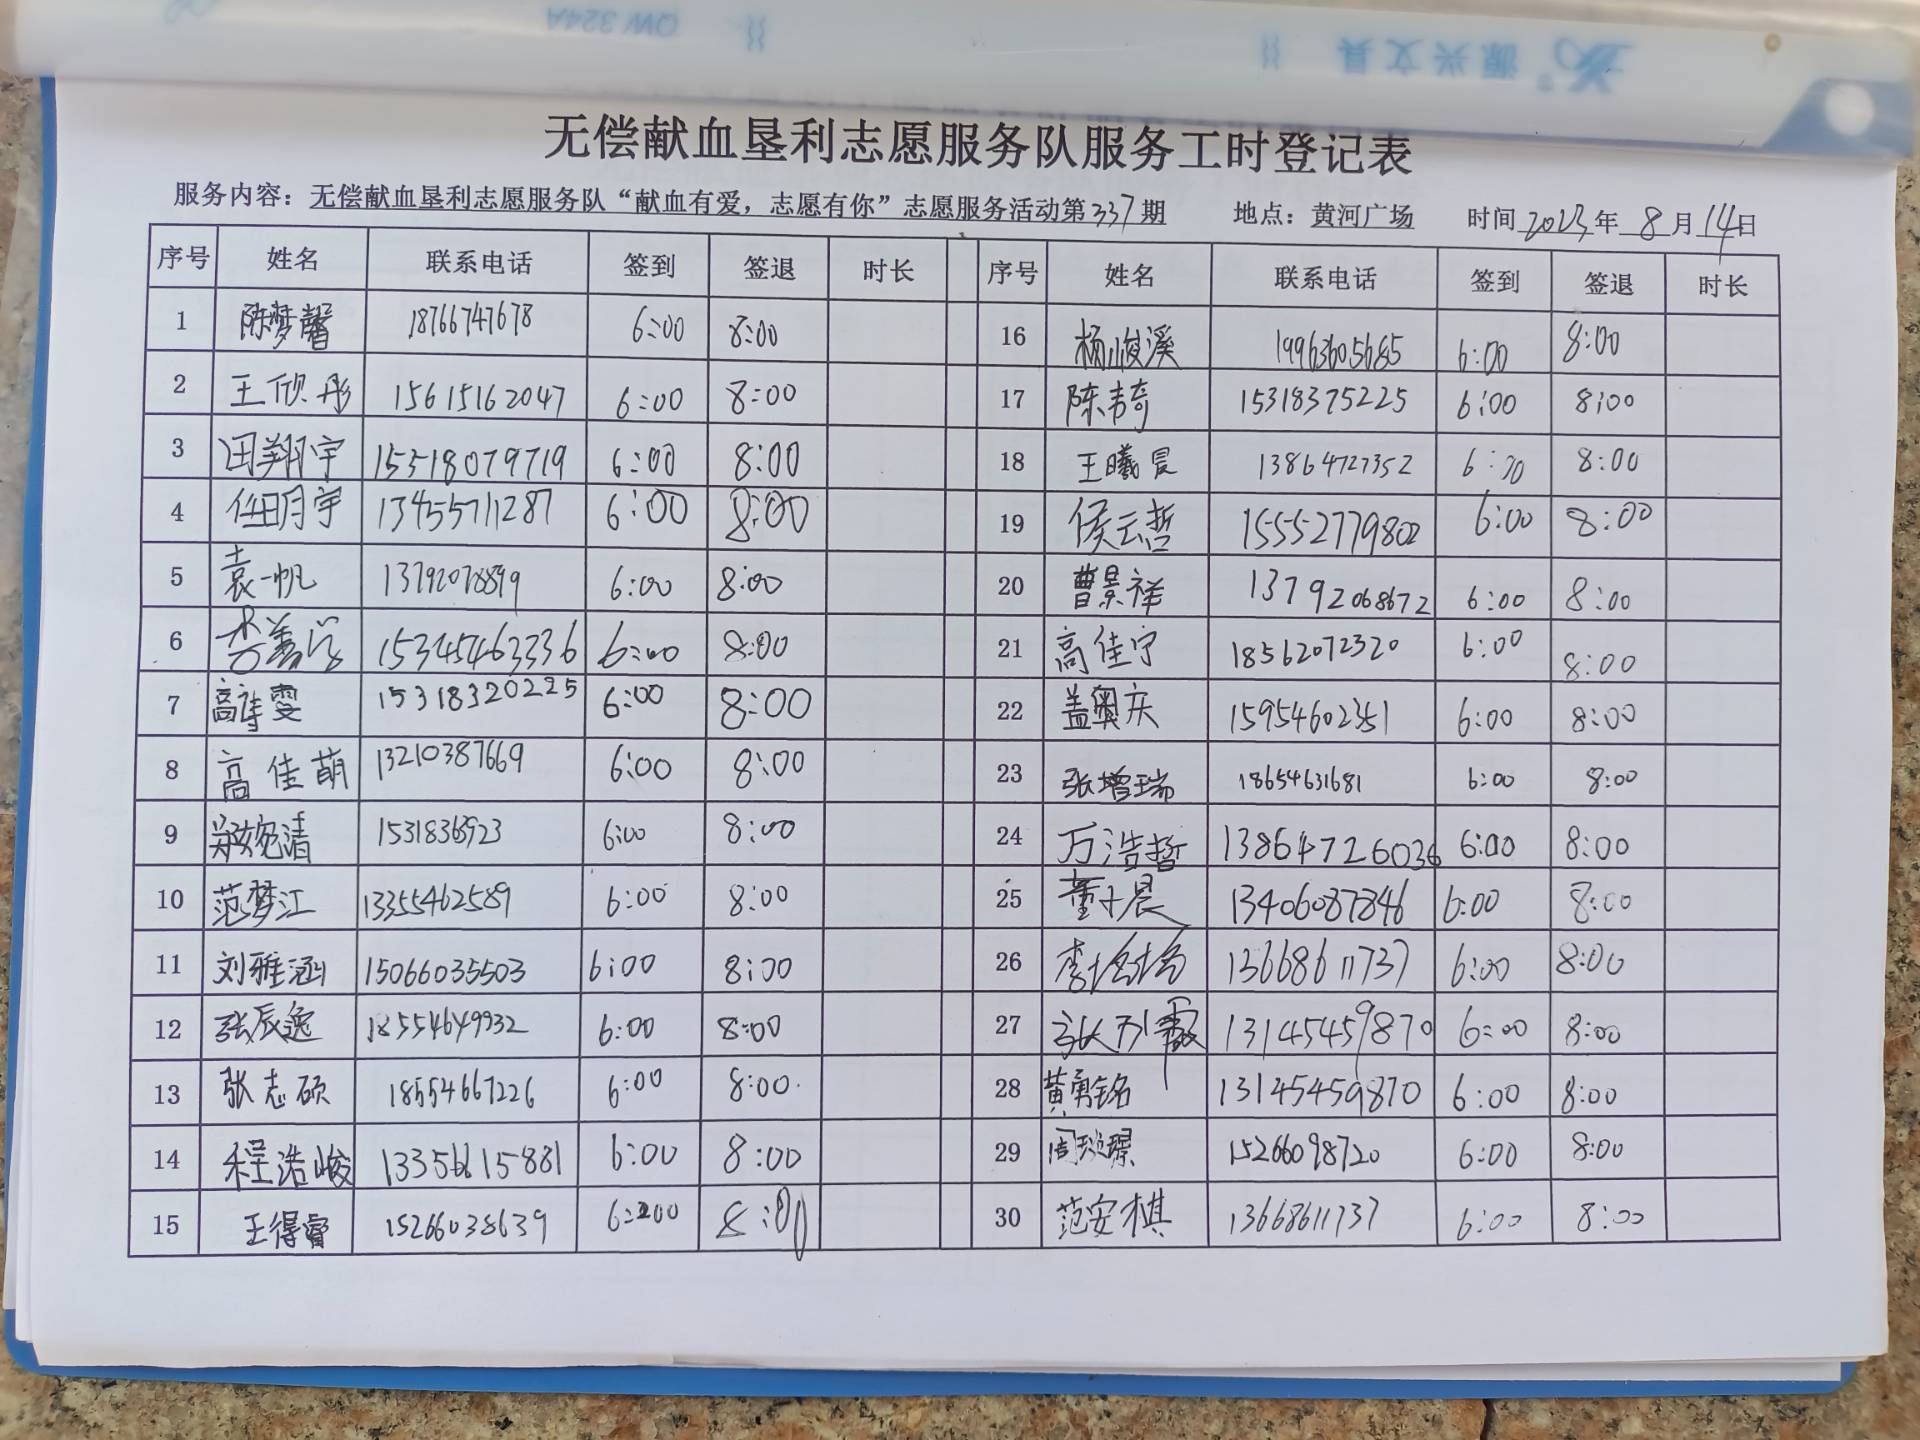 QW 324A
源兴文具
无偿献血垦利志愿服务队服务工时登记表
服务内容：无偿献血垦利志愿服务队“献血有爱，志愿有你”志愿服务活动第337期 地点：黄河广场 时间2023年8月14日
序号 姓名 联系电话 签到 签退 时长 序号 姓名 联系电话 签到 签退 时长
1 陈梦馨 18766747678 6:00 8:00 16 杨峻溪 19963605685 6:00 8:00
2 王欣彤 15615162047 6:00 8:00 17 陈韦奇 15318375225 6:00 8:00
3 田翔宇 15318079719 6:00 8:00 18 王曦晨 13864727352 6:00 8:00
4 任明宇 13455711287 6:00 8:00 19 侯云哲 15552779802 6:00 8:00
5 袁一帆 13792078899 6:00 8:00 20 曹景祥 13792068672 6:00 8:00
6 15345463336 6:00 8:00 21 高佳宁 18562072320 6:00 8:00
7 高诗雯 15318320225 6:00 8:00 22 盖奥庆 15954602351 6:00 8:00
8 高佳萌 13210387669 6:00 8:00 23 张增瑞 18654631681 6:00 8:00
9 郑婉清 6:00 8:00 24 万浩哲 13864726036 6:00 8:00
10 范梦江 13355462589 6:00 8:00 25 董子晨 13406087846 6:00 8:00
11 刘雅涵 15066035503 6:00 8:00 26 李 13668611737 6:00 8:00
12 张辰逸 18554649932 6:00 8:00 27 张 13145459870 6:00 8:00
13 张志硕 18554667226 6:00 8:00 28 黄勇铭 13145459870 6:00 8:00
14 程浩峻 13356615881 6:00 8:00 29 周 15266098720 6:00 8:00
15 王得睿 15266038639 6:00 8:00 30 范安棋 13668611737 6:00 8:00